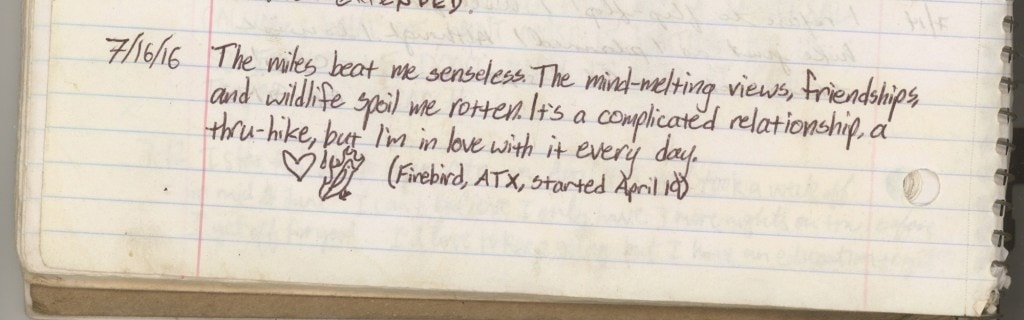 EXTENDED.
7/16/16 The miles beat me senseless. The mind-melting views, friendships,
and wildlife spoil me rotten. It's a complicated relationship, a
thru-hike, but I'm in love with it every day.
(Firebird, ATX, started April 19)